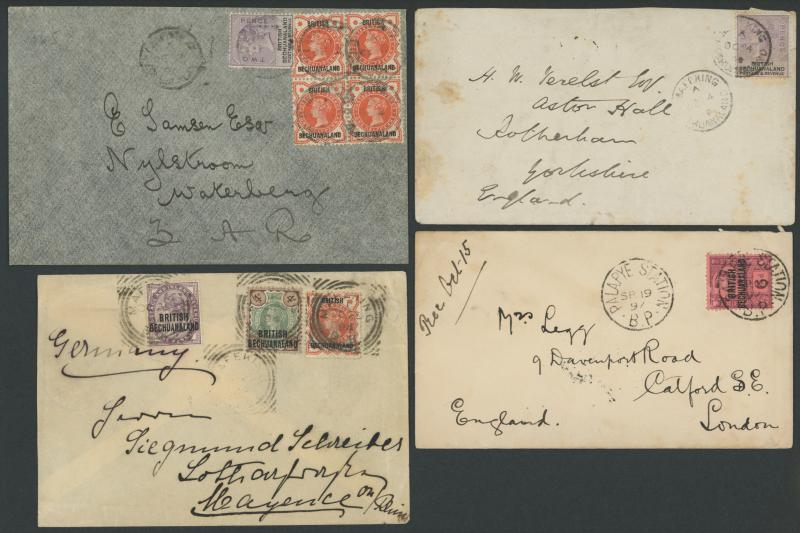 TWO PENCE
BRITISH
BECHUANALAND
BRITISH
BECHUANALAND
BRITISH
BECHUANALAND
BRITISH
BECHUANALAND
E Samsen Esqr
Nylstroom
Waterberg
Z A R
BRITISH
BECHUANALAND
POSTAGE & REVENUE
MAFEKING
H. W. Verelst Esq
Aston Hall
Rotherham
Yorkshire
England.
BRITISH
BECHUANALAND
BRITISH
BECHUANALAND
BRITISH
BECHUANALAND
Germany
Herrn
Siegmund Schreiber
Mayence on
Rec Oct-15
PALAPYE STATION
SP 19
97
B.P.
BRITISH
BECHUANALAND
Mrs Legg
9 Davenport Road
Catford S.E.
England. London